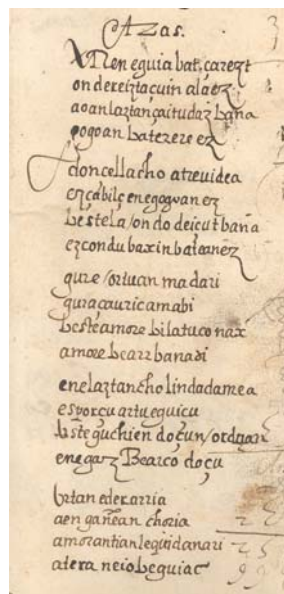 Azas.
Nen eguia bat çarezt
onderetztaçuin alaez
aoan laztançaitudaz bana
gogoan batezere ez
doncellacho atreuidea
ezcabilç ene gogoan ez
bestela / on dodeiçut bana
ezcondu baxinbateanez
gure / ortuan madari
guraçauricamabi
beste amore bilatuco nax
amore bearr banadi
ene laztancho linda damea
esporçu artu eguicu
beste guchien doçun / ordu
ene gaz Bearco doçu
vrtan eder arria
aen gañean choria
amorantian leguidanari
atera neio beguiac